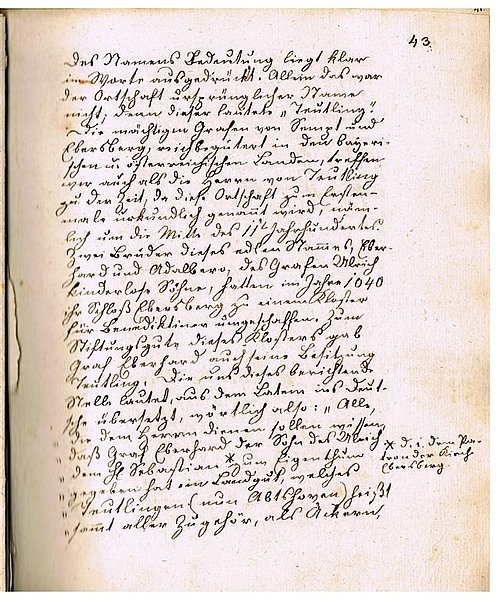 43.
Des Namens Bedeutung liegt klar
im Worte ausgedrückt. Allein das war
der Ortschaft ursprünglicher Name
nicht; denn dieser lautete „Teutling".
Die mächtigen Grafen von Sempt und
Ebersberg, reichbegütert in den bayeri-
schen u. österreichischen Landen, treffen
wir auch als die Herren von Teutling
zu der Zeit, da diese Ortschaft zum Ersten-
male urkundlich genannt wird, näm-
lich um die Mitte des 11t Jahrhundertes.
Zwei Brüder dieses edlen Stamms, Eber-
hard und Adalbero, des Grafen Ulrich
kinderlose Söhne, hatten im Jahre 1040
ihr Schloß Ebersberg zu einem Kloster
für Benediktiner umgeschaffen. Zum
Stiftungsgute dieses Klosters gab
Graf Eberhard auch seine Besitzung
Teutling. Die uns dieses berichtende
Stelle lautet, aus dem Latein ins Deut-
sche übersetzt, wörtlich also: „Alle,
„die dem Herrn dienen sollen wissen,
„daß Graf Eberhard der Sohn des Ulrich
„dem hl Sebastian * zum Eigenthum
„gegeben hat ein Landgut, welches
„Teutlingen (nun Abtshoven) heißt
„sammt aller Zugehör, als Äckern,
* d. i. dem Pa-
tron der Kirche
Ebersberg.